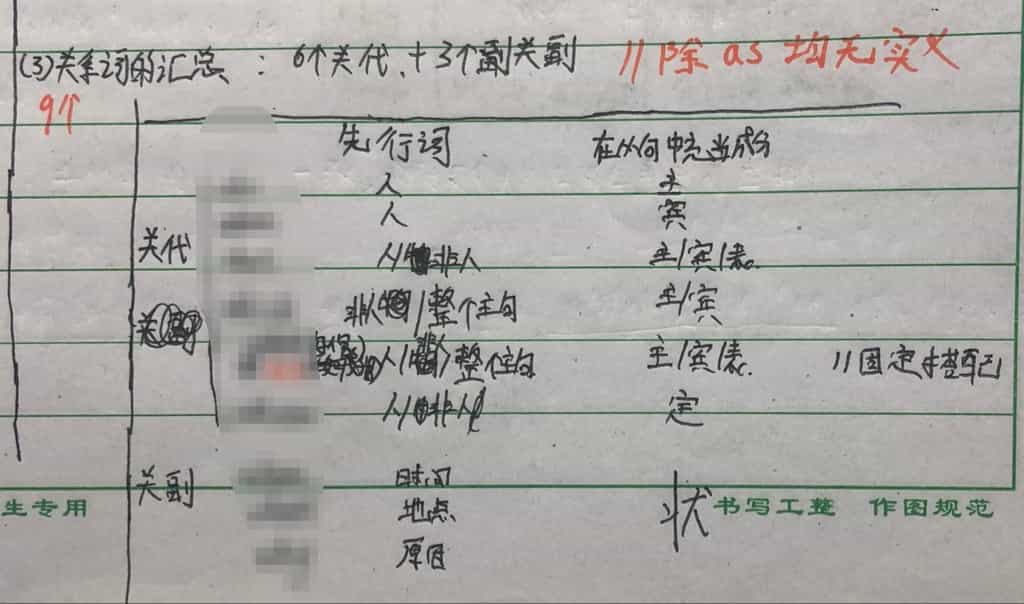 (3)关系词的汇总：6个关代.+3个关副 //除as均无实义
9个
先行词 在从句中充当成分
人 主
人 宾
关代 人/非人 主/宾/表
非人/整个主句 主/宾
人/ /整个主句 主/宾/表 //固定搭配
人/非人 定
关副 时间
地点 状
原因
生专用 书写工整 作图规范